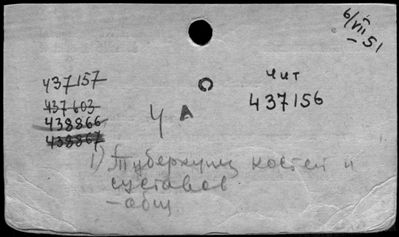 6/VII
–51
437157
437603
438866
438867
Чит
437156
Ч А
1) Туберкулез костей и
суставов
– общ